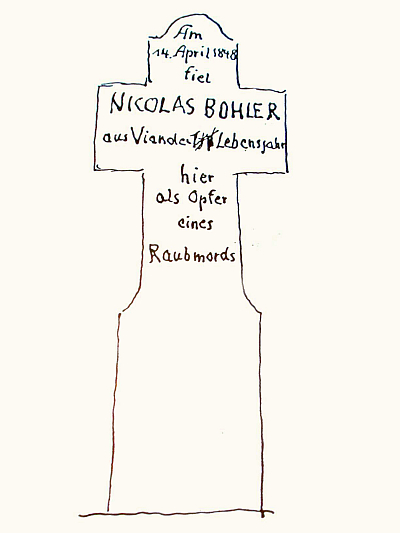 Am
14. April 1848
fiel
NICOLAS BOHLER
aus Vianden Lebensjahr
hier
als Opfer
eines
Raubmords